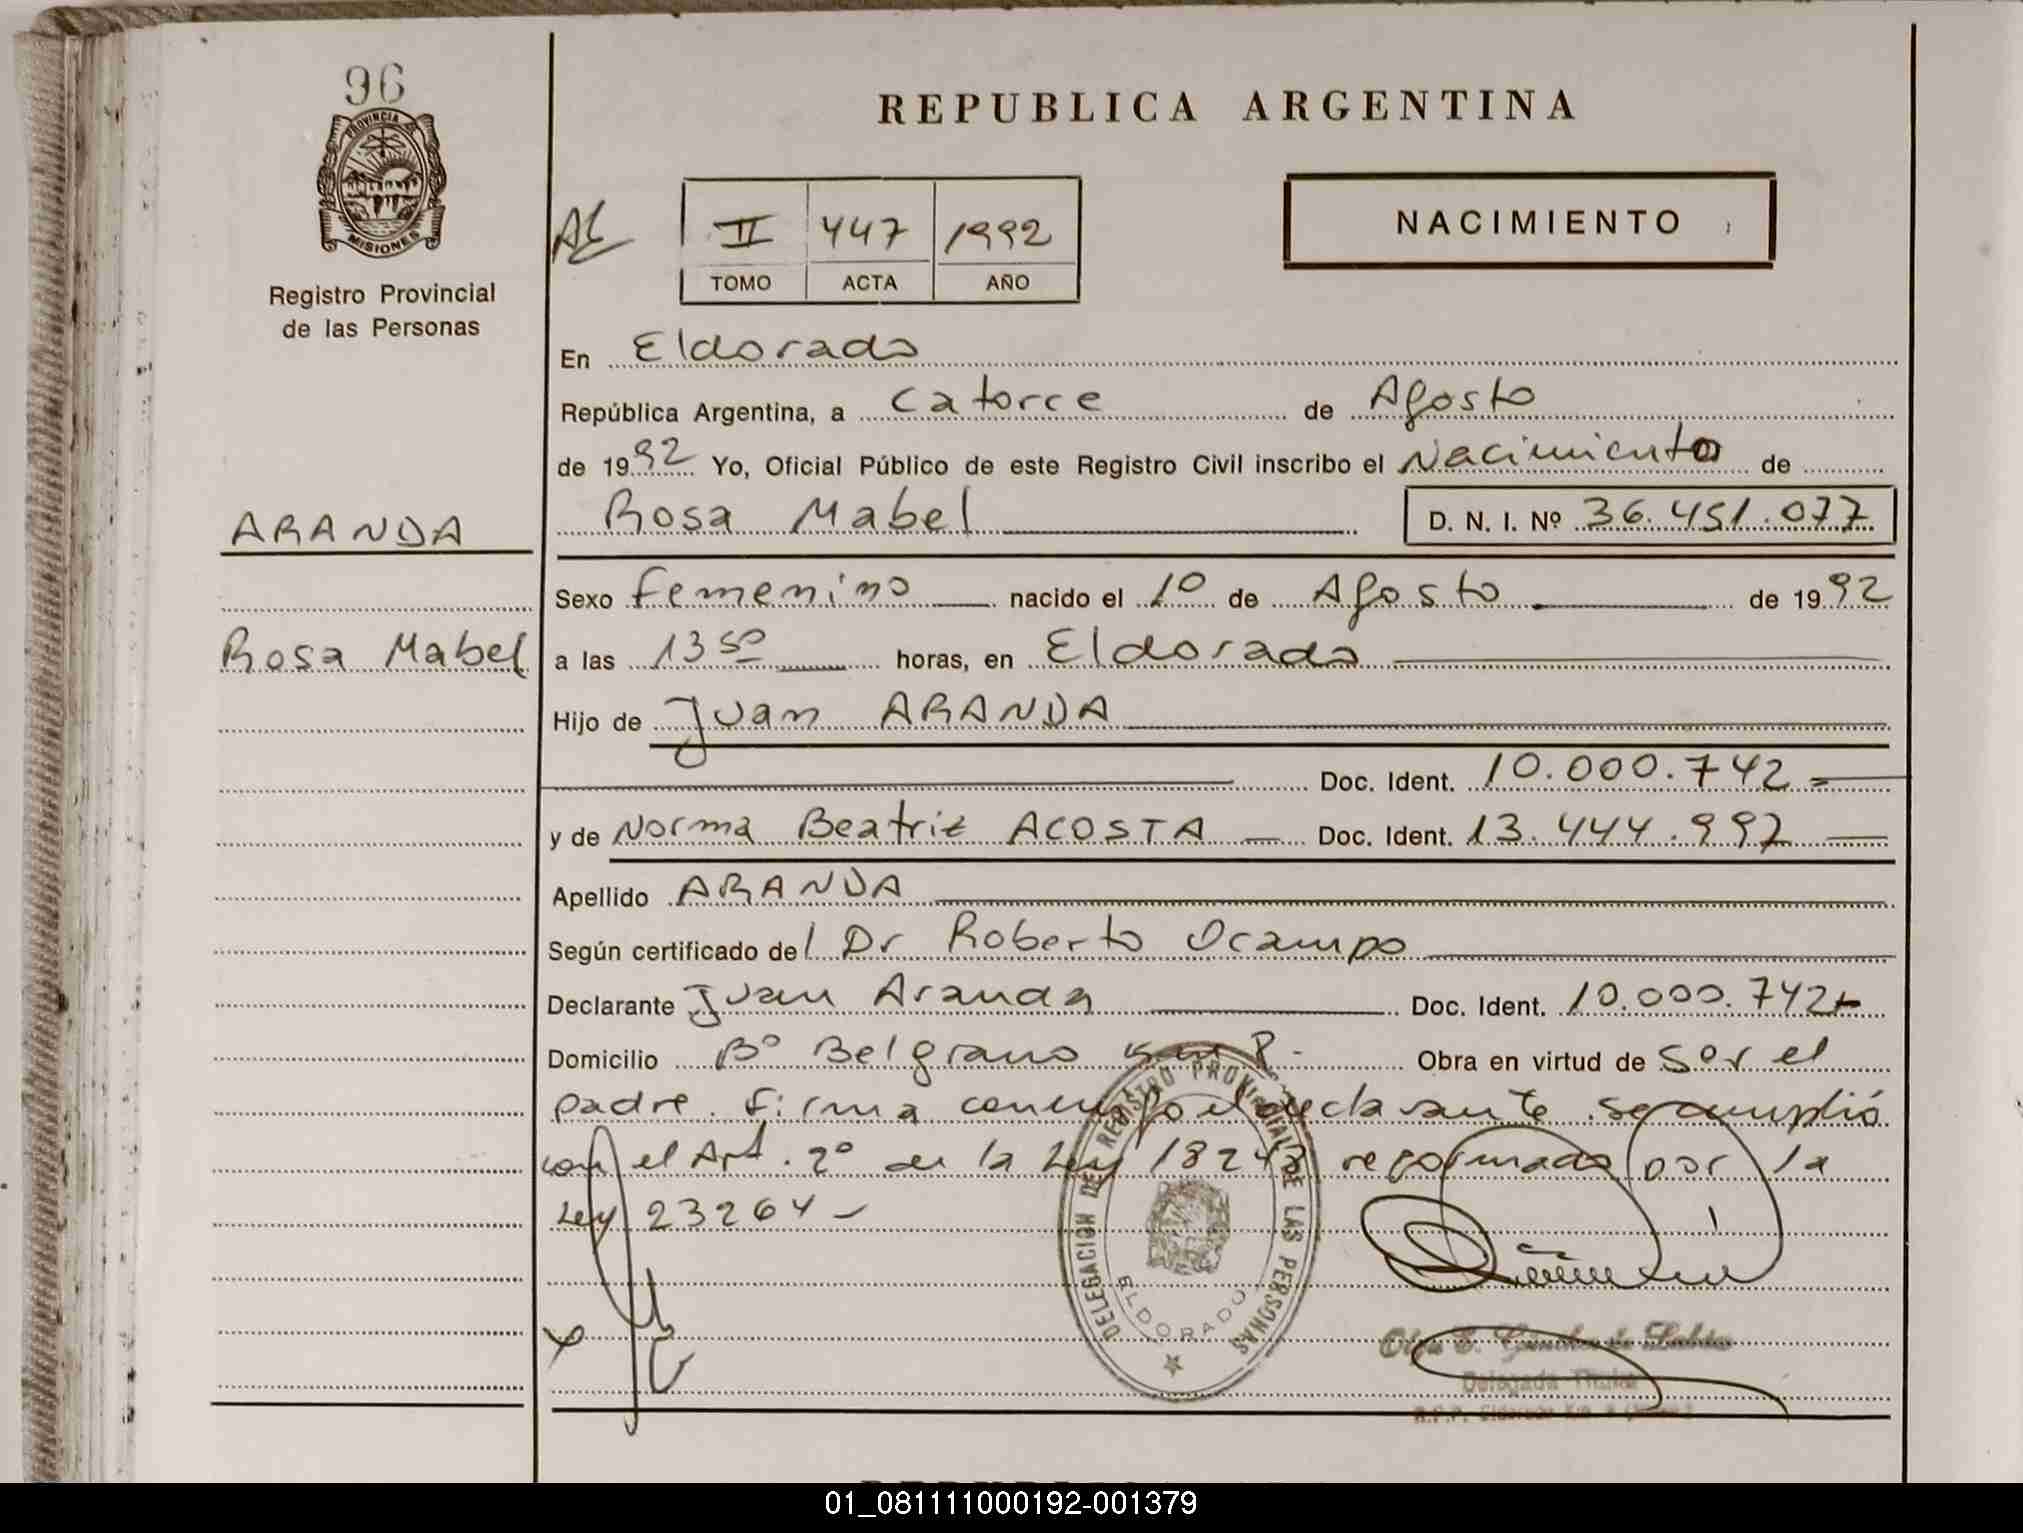 96
PROVINCIA DE
MISIONES
Registro Provincial
de las Personas
REPUBLICA ARGENTINA
II 447 1992
TOMO ACTA AÑO
NACIMIENTO
En Eldorado
República Argentina, a Catorce de Agosto
de 1992 Yo, Oficial Público de este Registro Civil inscribo el Nacimiento de
Rosa Mabel D. N. I. Nº 36.451.077
ARANDA
Rosa Mabel
Sexo femenino nacido el 1º de Agosto de 1992
a las 13 50 horas, en Eldorado
Hijo de Juan ARANDA
Doc. Ident. 10.000.742
y de Norma Beatriz ACOSTA Doc. Ident. 13.444.992
Apellido ARANDA
Según certificado del Dr Roberto Ocampo
Declarante Juan Aranda Doc. Ident. 10.000.742
Domicilio Bº Belgrano Obra en virtud de ser el
padre. firma conmigo el declarante. Se cumplió
con el Art. 2º de la Ley 18248 reformado por la
Ley 23264
DELEGACION DE REGISTRO PROVINCIAL DE LAS PERSONAS
ELDORADO
Delegada Titular
01_081111000192-001379